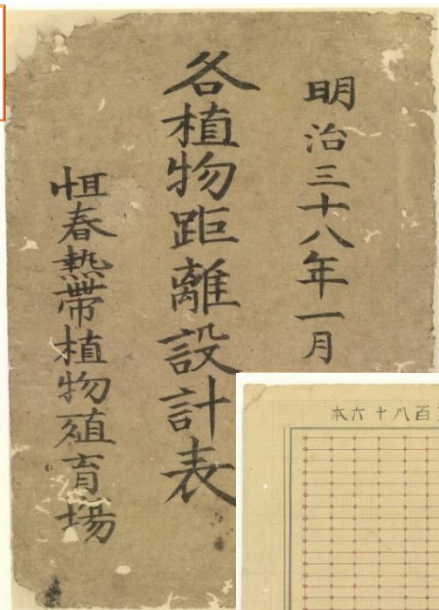 明治三十八年一月
各植物距離設計表
恒春熱帶植物殖育場
百八十六本